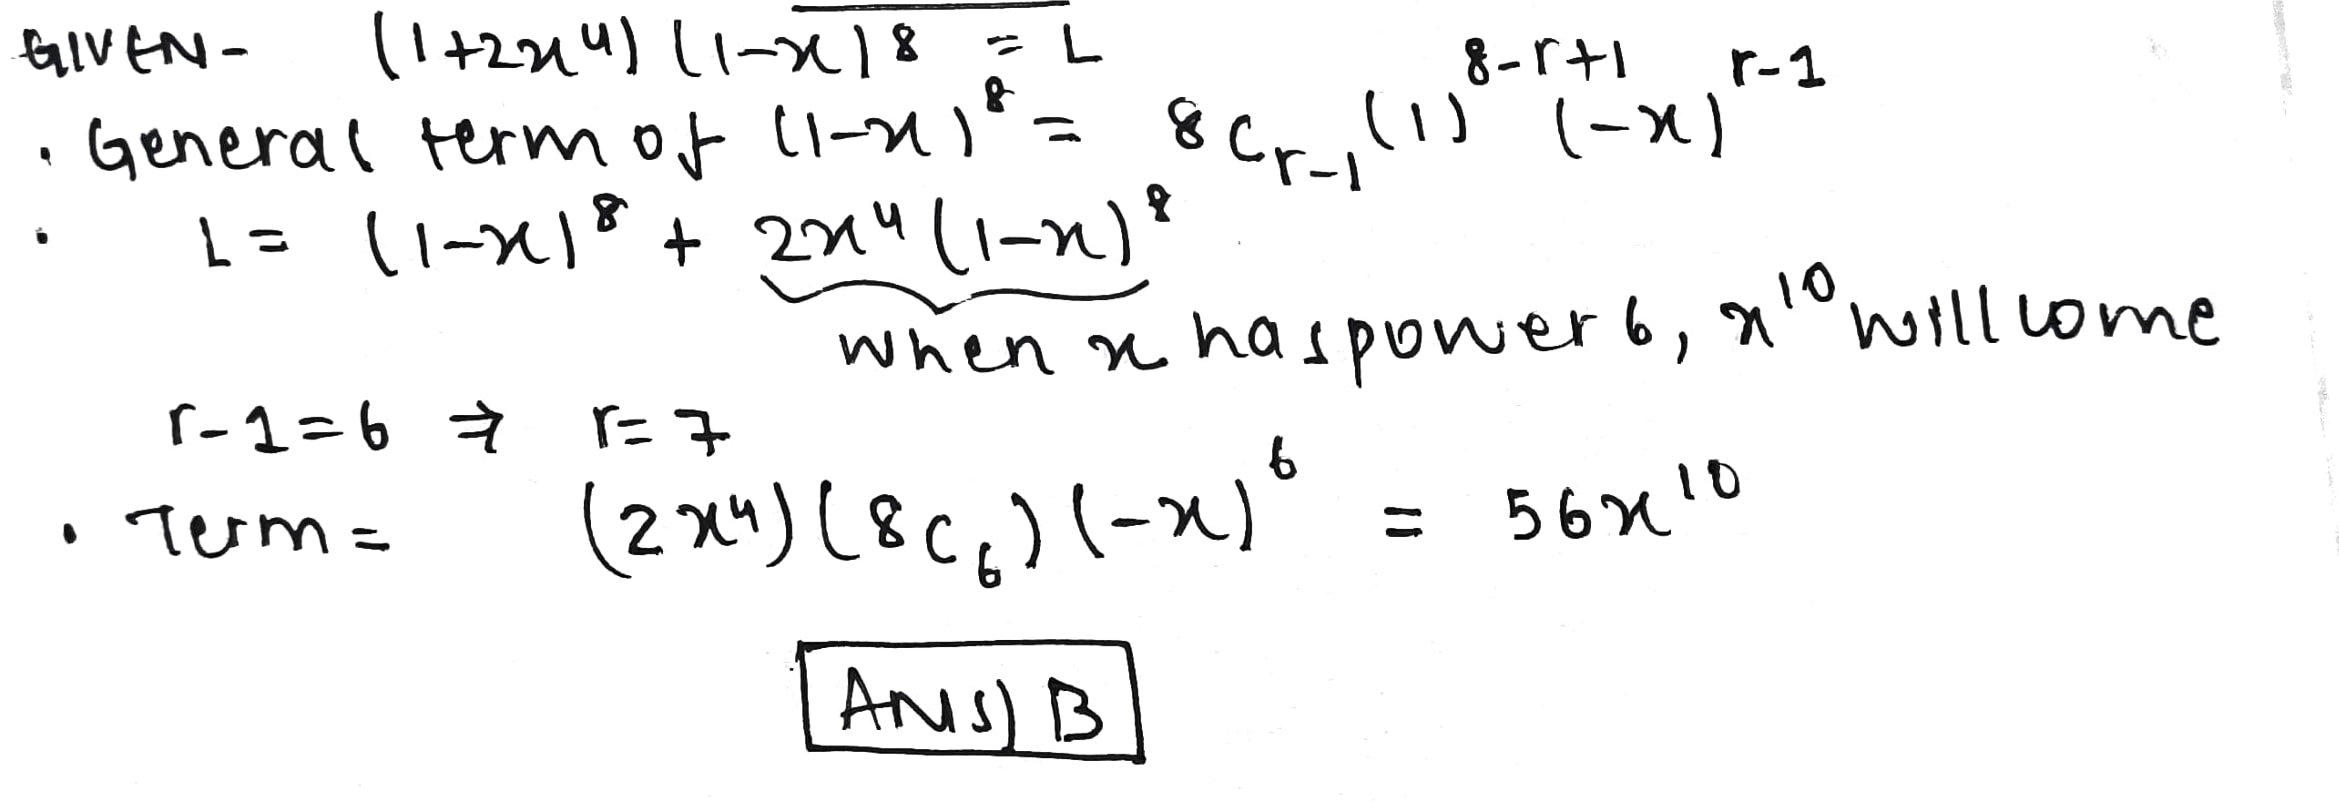 GIVEN- (1+2x⁴)(1-x)8 = L
• General term of (1-x)⁸ = 8Cᵣ₋₁(1)⁸⁻ʳ⁺¹(-x)ʳ⁻¹
• L = (1-x)⁸ + 2x⁴(1-x)⁸
when x has power 6, x¹⁰ will come
r-1=6 ⇒ r=7
• Term = (2x⁴)(8C₆)(-x)⁶ = 56x¹⁰
ANS) B